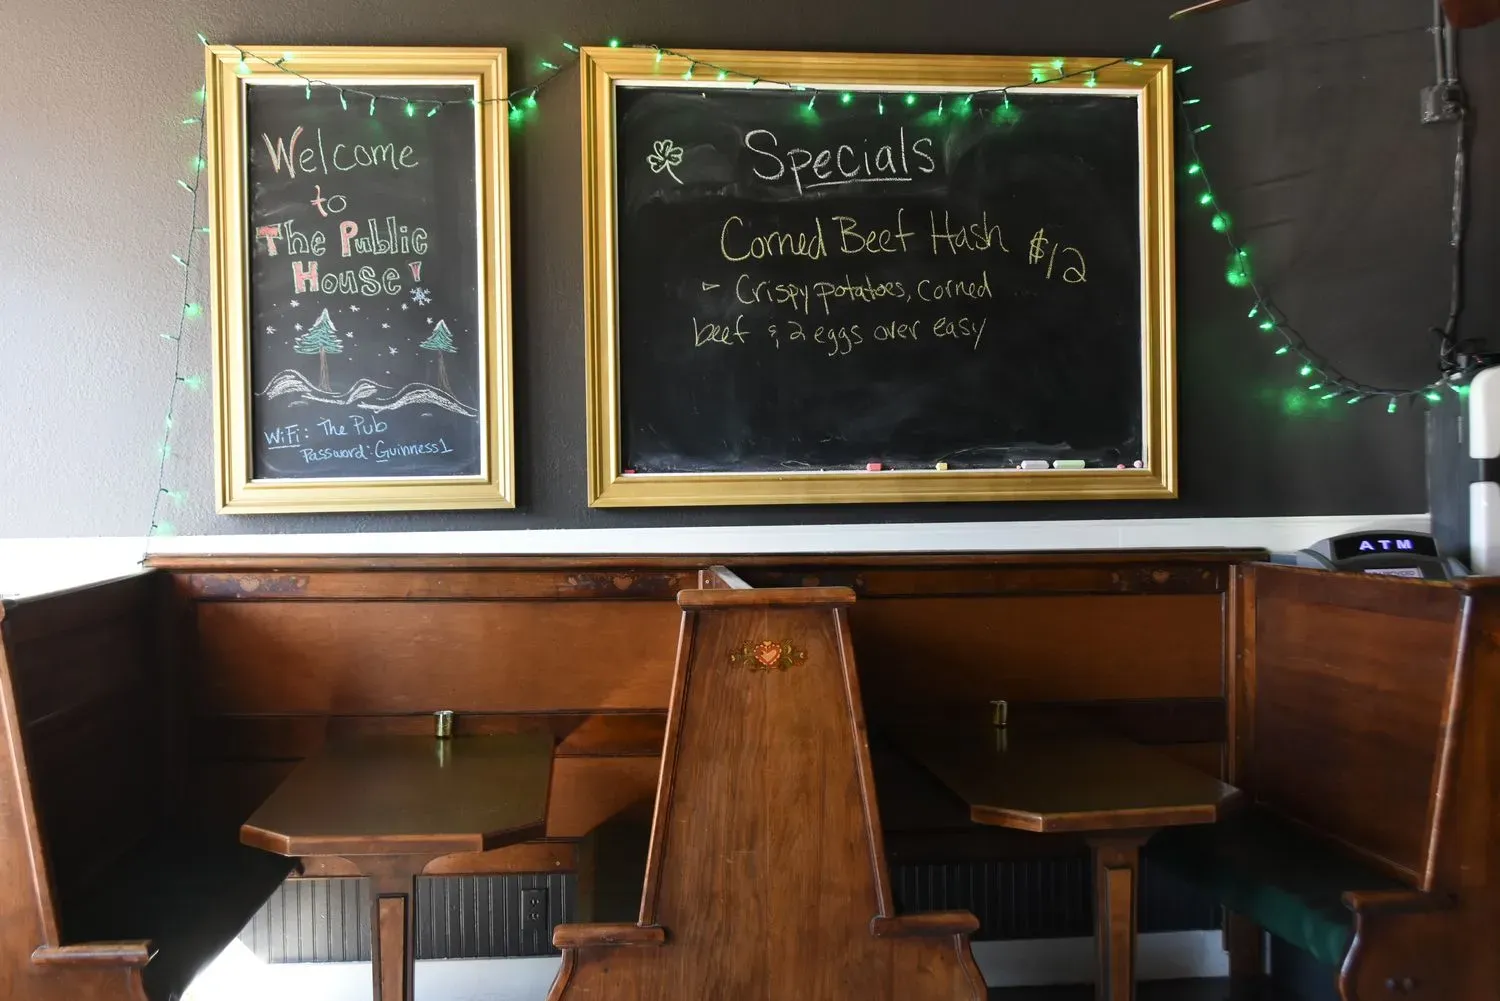 Welcome
to
The Public
House!
WiFi: The Pub
Password: Guinness1
Specials
Corned Beef Hash $12
- Crispy potatoes, corned
beef & 2 eggs over easy
ATM